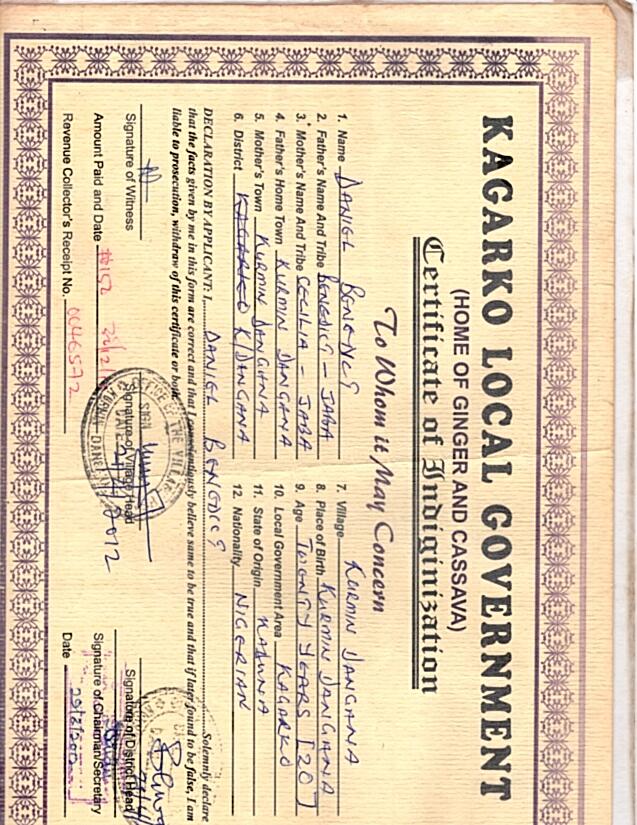 KAGARKO LOCAL GOVERNMENT
(HOME OF GINGER AND CASSAVA)
Certificate of Indiginization
To Whom it May Concern
1. Name DANIEL BENEDICT
2. Father's Name And Tribe BENEDICT - JABA
3. Mother's Name And Tribe CECILIA - JABA
4. Father's Home Town KURMIN DANGANA
5. Mother's Town KURMIN DANGANA
6. District KAGARKO K/DANGANA
7. Village KURMIN DANGANA
8. Place of Birth KURMIN DANGANA
9. Age TWENTY YEARS [20]
10. Local Government Area KAGARKO
11. State of Origin KADUNA
12. Nationality NIGERIAN
DECLARATION BY APPLICANT: I, DANIEL BENEDICT Solemnly declare
that the facts given by me in this form are correct and that I conscientiously believe same to be true and that if later found to be false, I am
liable to prosecution, withdraw of this certificate or both.
Signature of Witness
Signature of Village Head
Signature of District Head
Amount Paid and Date ₦152
Signature of Chairman/Secretary
Revenue Collector's Receipt No. 0046572
Date
OFFICE OF THE VILLAGE
SIGN
DATE